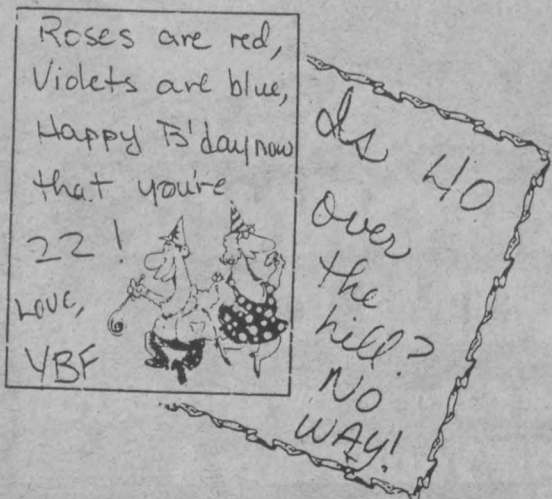 Roses are red,
Violets are blue,
Happy B'day now
that you're
22!
Love,
YBF
Is 40
over
the
hill?
NO
WAY!